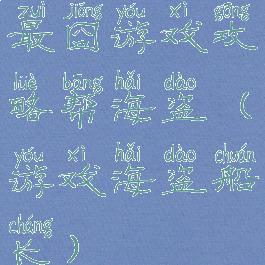 zuì jiǒng yóu xì gōng
最囧游戏攻
lüè bāng hǎi dào
略帮海盗（
yóu xì hǎi dào chuán
游戏海盗船
cháng
长）